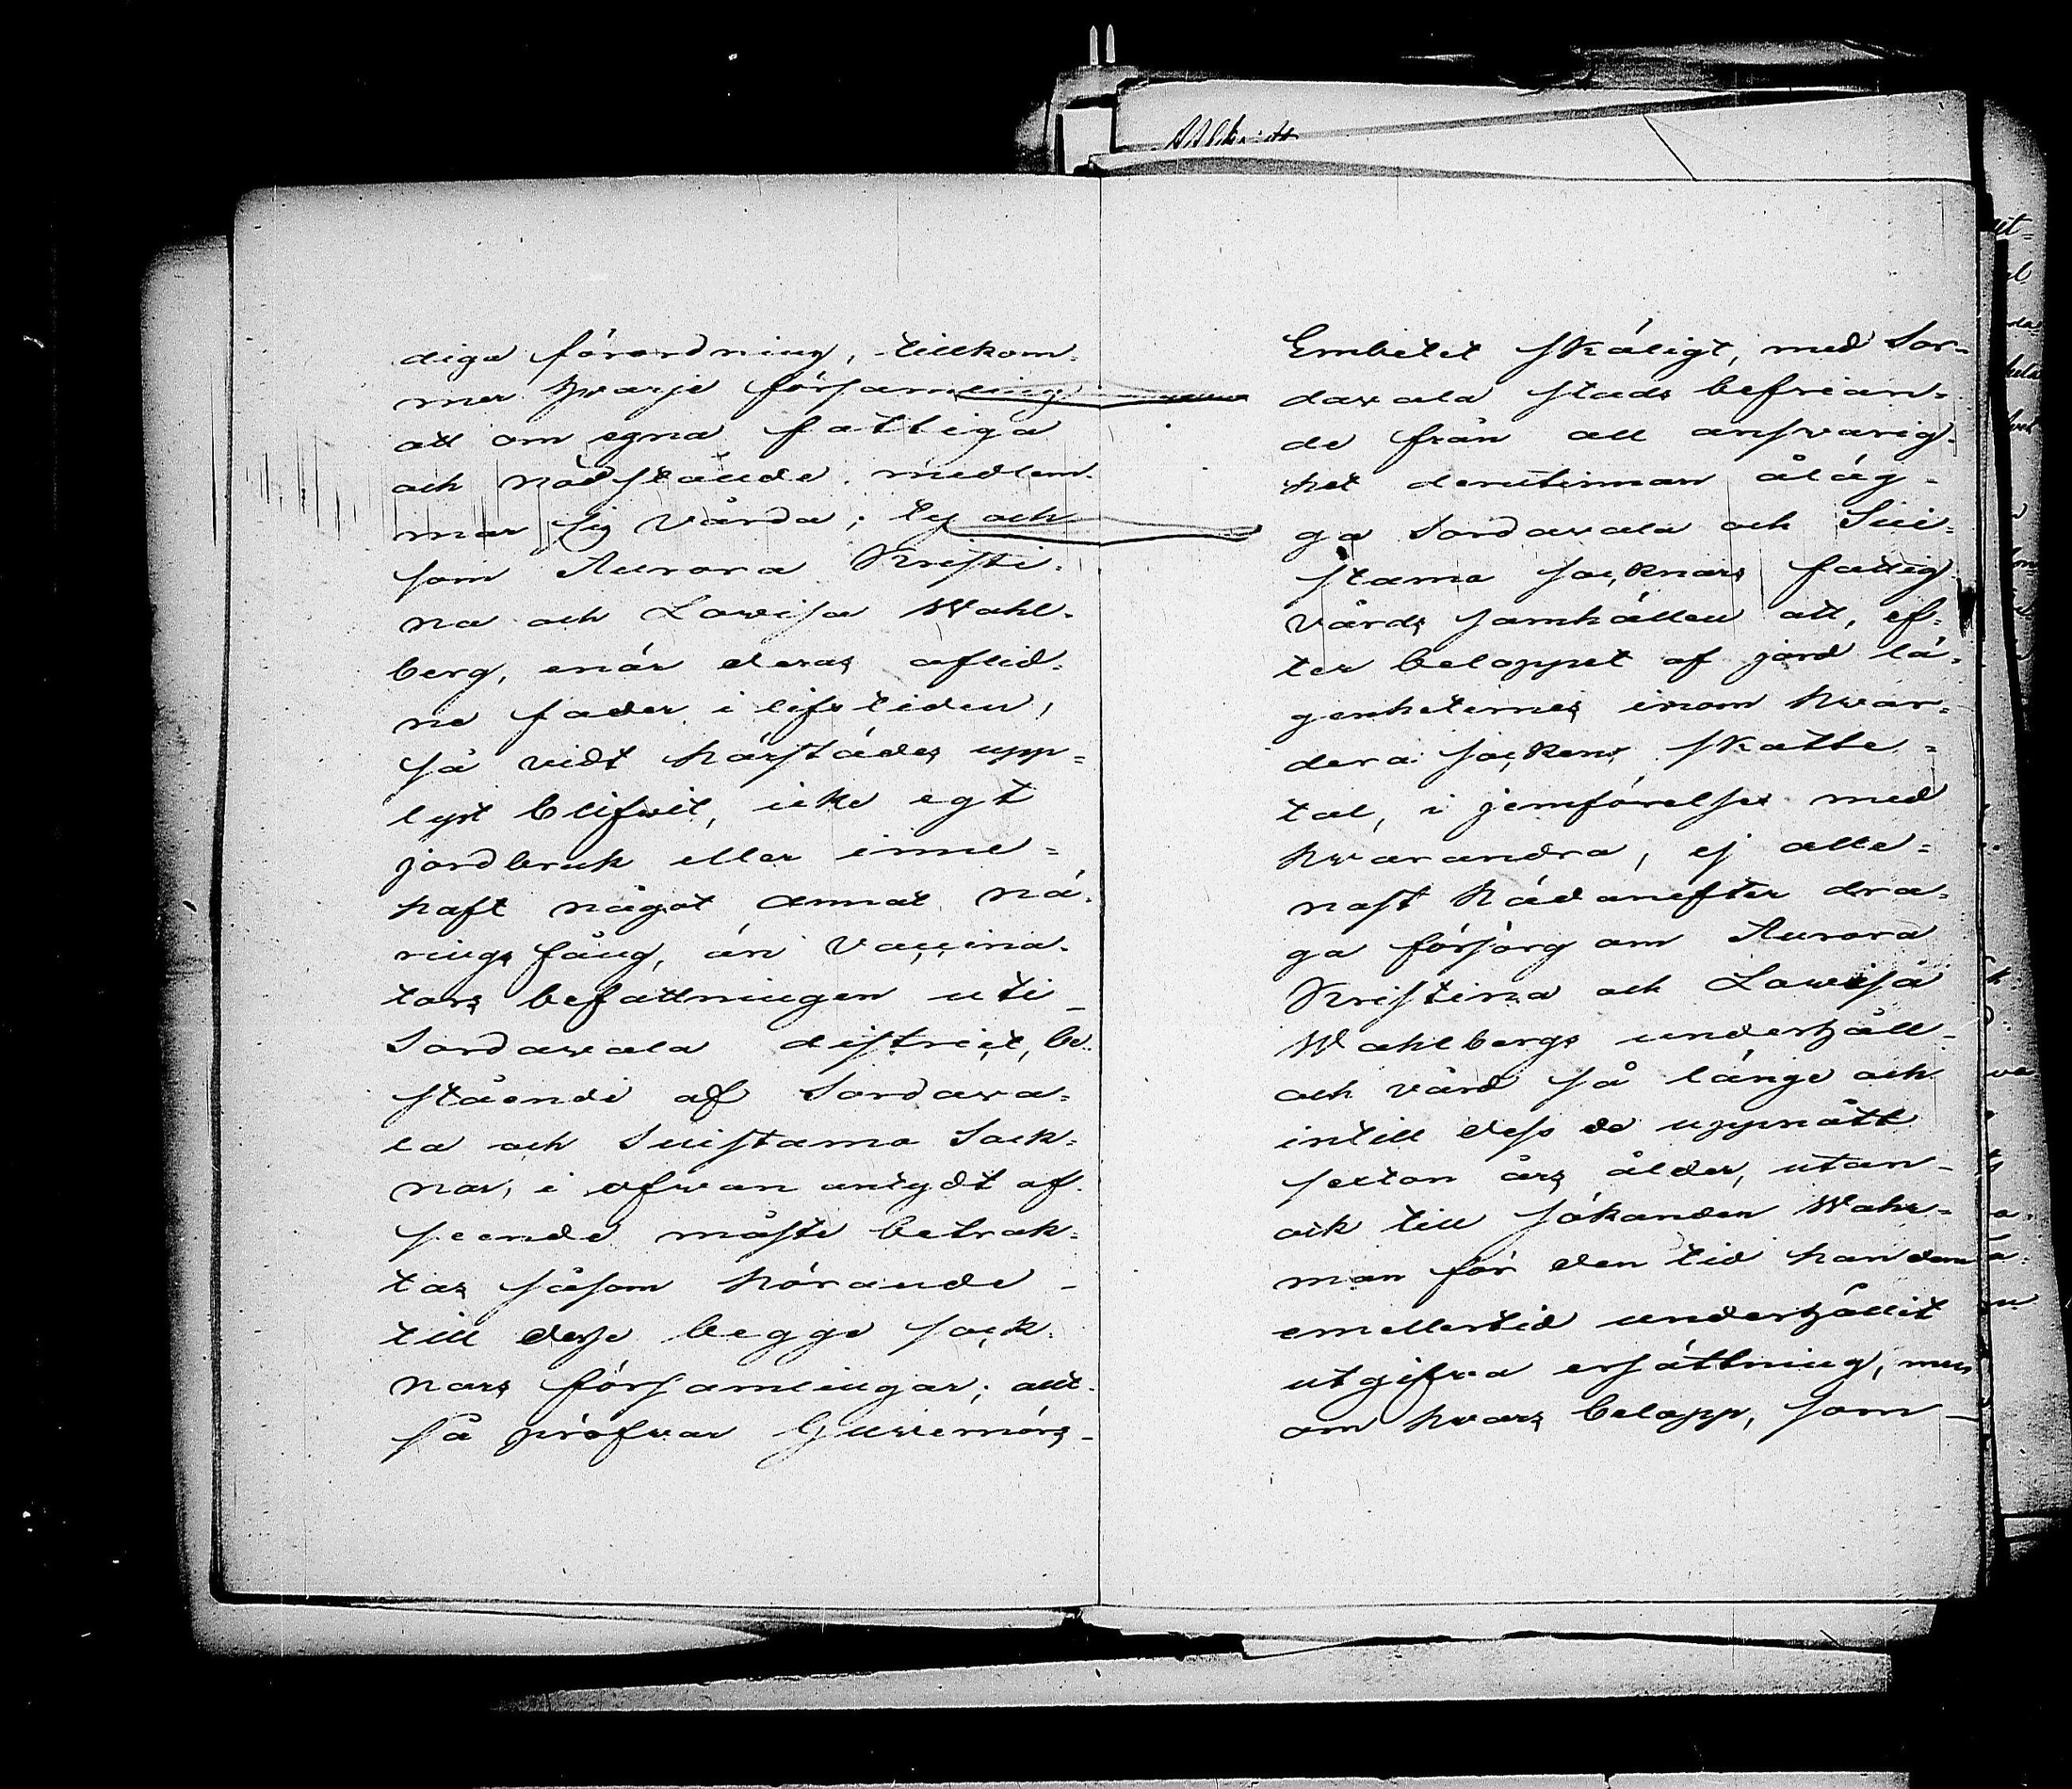 diga förordning, tillkom-
mer hvarje församling
att om egna fattiga
och nödstände medlem-
mar sig vårda; ty och
som Aurora Kristi-
na och Lowisa Wahl-
berg, enär deras aflid-
ne fader i lifstiden,
så vidt härstädes upp=
lyst blifwit, icke egt
jordbruk eller inne=
haft något annat nä-
ringsfång, än Vaccina-
tors befattningen uti
Sordawala district, be-
stående af Sordawa=
la och Suistamo Sock=
nar, i ofwan antydt af-
seende måste betrak=
tas såsom hörande
till desse begge sock-
nars församlingar; allt-
så pröfwar Guvernörs-
Embetet skäligt, med Sor-
dawala stads befrian=
de från all ansvarig-
het derutinnan åläg-
ga Sordawala och Sui-
stamo socknars fattig
vårds samhällen att, ef-
ter beloppet af jord lä-
genheternes inom hvar-
dera socken skatte=
tal, i jemförelse med
hwarandra, ej alle=
nast hädanefter dra-
ga försorg om Aurora
Kristina och Lowisa
Wahlbergs underhåll
och vård så länge och
intill dess de uppnått
sexton års ålder, utan
ock till sökanden Wahr-
man för den tid han dem
emellertid underhållit
utgifwa ersättning, men
om hvars belopp, som